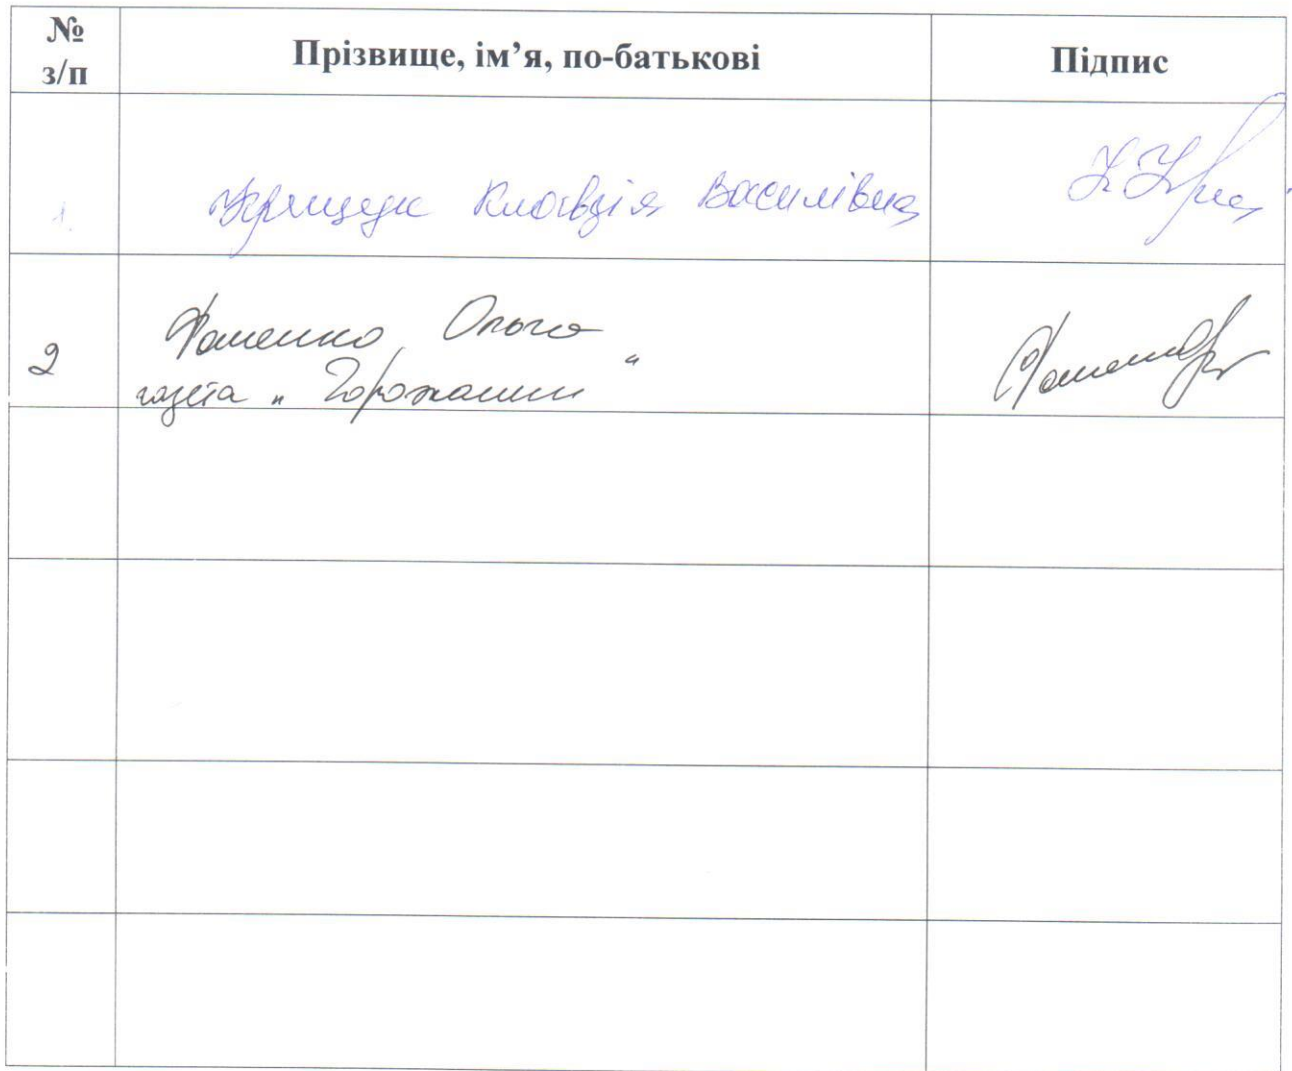 № з/п
Прізвище, ім’я, по-батькові
Підпис
1.
Клавдія Василівна
2
Фоменко Ольга
газета „Горожанин“